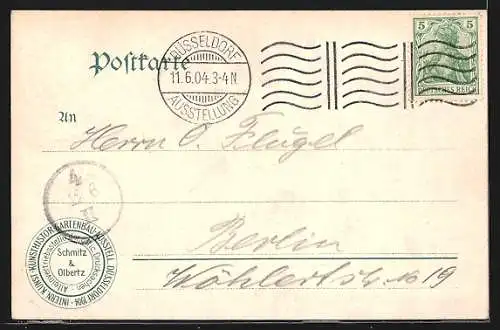 Postkarte
DÜSSELDORF
11.6.04.3-4N.
AUSSTELLUNG
5 5
DEUTSCHES REICH
An
Herrn O. Flügel
Berlin
Wöhlertstr. No 19
INTERN. KUNST- KUNSTHISTOR. GARTENBAU-AUSSTELL. DÜSSELDORF 1904
Schmitz
&
Olbertz